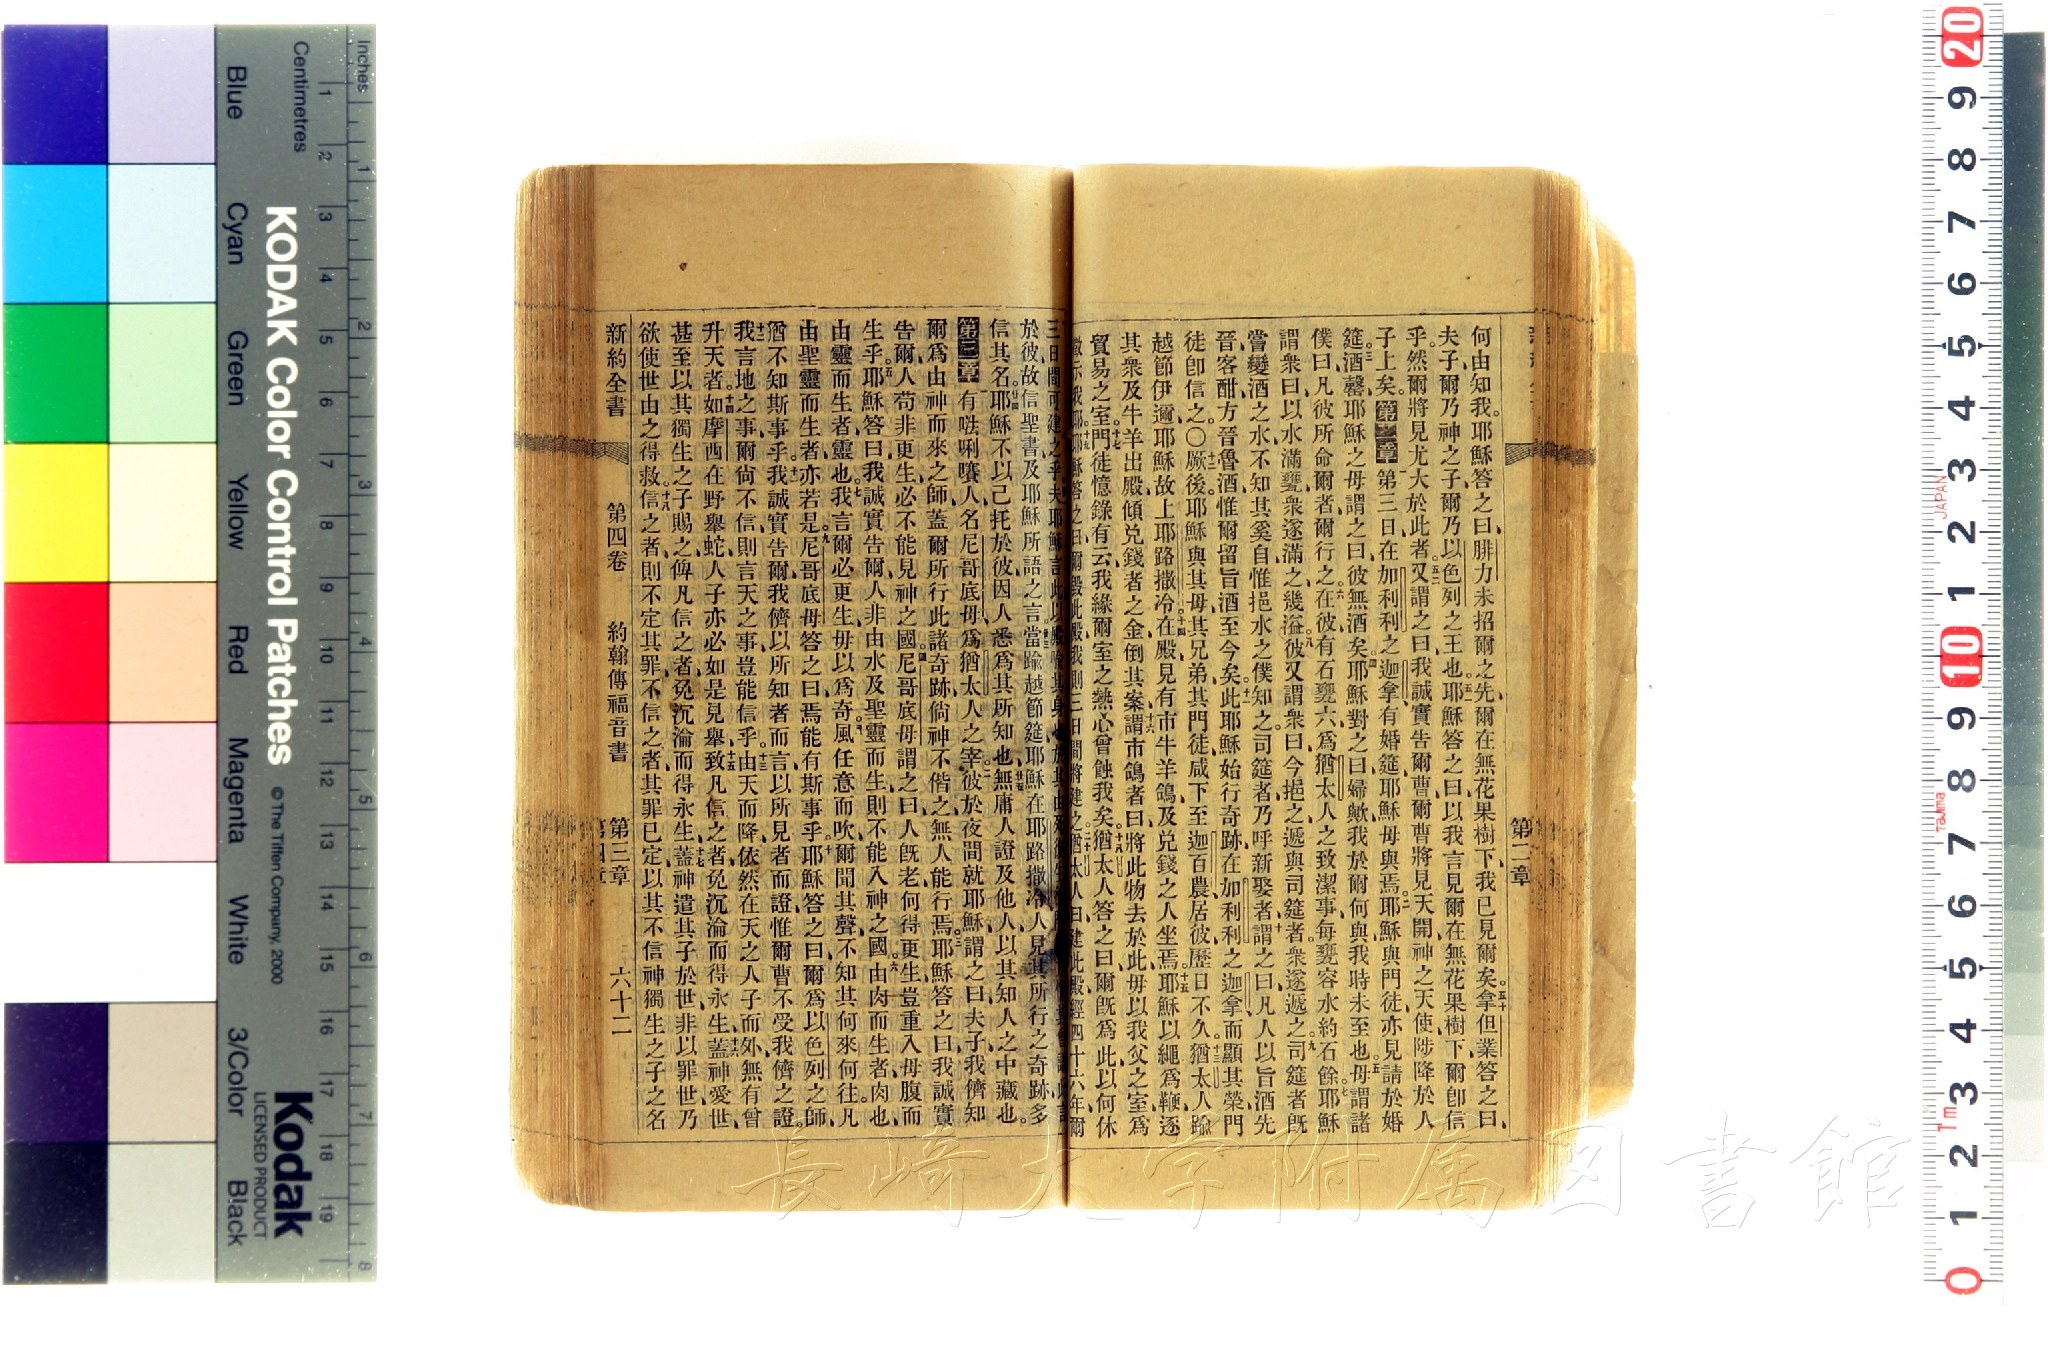 何由知我耶穌答之曰腓力未招爾之先爾在無花果樹下我已見爾矣拿但業答之曰
夫子爾乃神之子爾乃以色列之王也耶穌答之曰以我言見爾在無花果樹下爾卽信
乎然爾將見尤大於此者又謂之曰我誠實告爾曹爾曹將見天開神之天使陟降於人
子上矣第二章第三日在加利利之迦拿有婚筵耶穌母與焉耶穌與門徒亦見請於婚
筵酒罄耶穌之母謂之曰彼無酒矣耶穌對之曰婦歟我於爾何與我時未至也母謂諸
僕曰凡彼所命爾者爾行之在彼有石甕六爲猶太人之致潔事每甕容水約石餘耶穌
謂衆曰以水滿甕衆遂滿之幾溢彼又謂衆曰今挹之遞與司筵者衆遂遞之司筵者旣
嘗變酒之水不知其奚自惟挹水之僕知之司筵者乃呼新娶者謂之曰凡人以旨酒先
晉客酣方晉魯酒惟爾留旨酒至今矣此耶穌始行奇跡在加利利之迦拿而顯其榮門
徒卽信之〇厥後耶穌與其母其兄弟其門徒咸下至迦百農居彼歷日不久猶太人踰
越節伊邇耶穌故上耶路撒冷在殿見有市牛羊鴿及兌錢之人坐焉耶穌以繩爲鞭逐
其衆及牛羊出殿傾兌錢者之金倒其案謂市鴿者曰將此物去於此毋以我父之室爲
貿易之室門徒憶錄有云我緣爾室之熱心曾蝕我矣猶太人答之曰爾旣爲此以何休
徵示我耶耶穌答之曰爾毀此殿我則三日間將建之猶太人曰建此殿經四十六年爾
三日間可建之乎夫耶穌言此以殿
於彼故信聖書及耶穌所語之言當踰越節筵耶穌在耶路撒冷人見其所行之奇跡多
信其名耶穌不以己托於彼因人悉爲其所知也無庸人證及他人以其知人之中藏也
第三章有𠵽唎㘔人名尼哥底母爲猶太人之宰彼於夜間就耶穌謂之曰夫子我儕知
爾爲由神而來之師蓋爾所行此諸奇跡倘神不偕之無人能行焉耶穌答之曰我誠實
告爾人苟非更生必不能見神之國尼哥底母謂之曰人旣老何得更生豈重入母腹而
生乎耶穌答曰我誠實告爾人非由水及聖靈而生則不能入神之國由肉而生者肉也
由靈而生者靈也我言爾必更生毋以爲奇風任意而吹爾聞其聲不知其何來何往凡
由聖靈而生者亦若是尼哥底母答之曰焉能有斯事乎耶穌答之曰爾爲以色列之師
猶不知斯事乎我誠實告爾我儕以所知者而言以所見者而證惟爾曹不受我儕之證
我言地之事爾尙不信則言天之事豈能信乎由天而降依然在天之人子而外無有曾
升天者如摩西在野舉蛇人子亦必如是見舉致凡信之者免沉淪而得永生蓋神愛世
甚至以其獨生之子賜之俾凡信之者免沉淪而得永生蓋神遣其子於世非以罪世乃
欲使世由之得救信之者則不定其罪不信之者其罪已定以其不信神獨生之子之名
新約全書 第四卷 約翰傳福音書 第三章 六十二
第二章
長崎大学附属図書館
Inches
Centimetres
Blue
Cyan
Green
Yellow
Red
Magenta
White
3/Color
Black
KODAK Color Control Patches
© The Tiffen Company, 2000
Kodak
LICENSED PRODUCT
1 2 3 4 5 6 7 8 9 10 11 12 13 14 15 16 17 18 19
1 2 3 4 5 6 7 8
20 9 8 7 6 5 4 3 2 1 10 9 8 7 6 5 4 3 2 1 0
JAPAN
Tajima